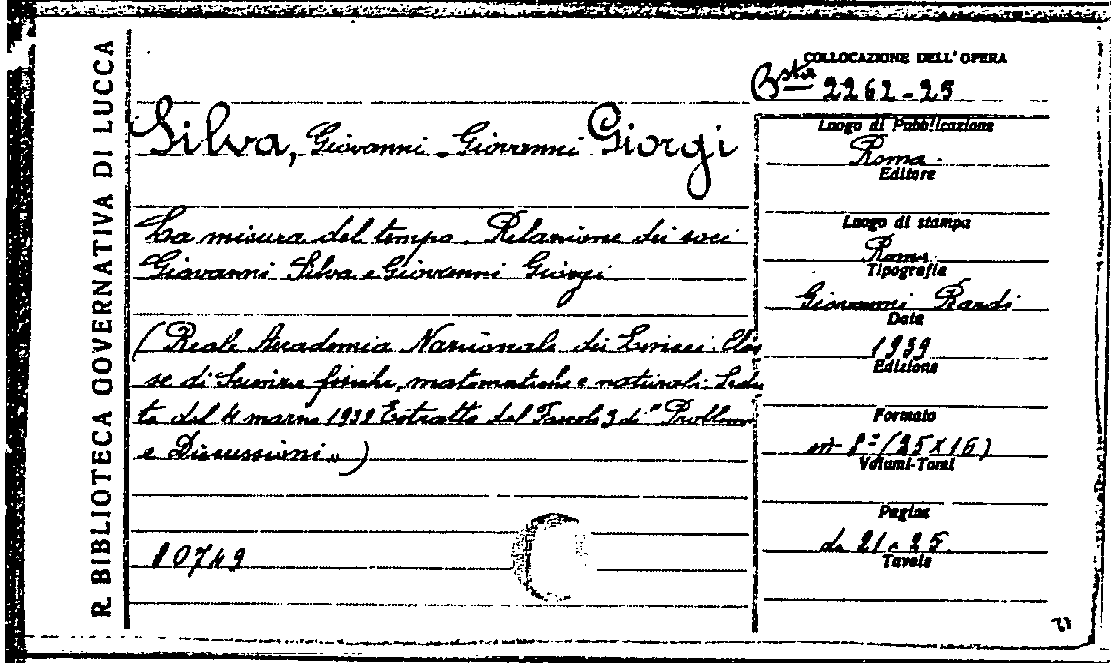 R. BIBLIOTECA GOVERNATIVA DI LUCCA
COLLOCAZIONE DELL'OPERA
Bsta 2262-25
Silva, Giovanni - Giovanni Giorgi
La misura del tempo. Relazione dei soci
Giovanni Silva e Giovanni Giorgi
(Reale Accademia Nazionale dei Lincei. Clas
se di Scienze fisiche, matematiche e naturali. Sedu
ta del 4 marzo 1939 Estratto dal Fascolo 3 di "Problemi
e Discussioni")
10749
Luogo di Pubblicazione
Roma
Editore
Luogo di stampa
Roma
Tipografia
Giovanni Bardi
Data
1939
Edizione
Formato
in 8° (25x16)
Volumi-Tomi
Pagine
da 21 a 25
Tavole